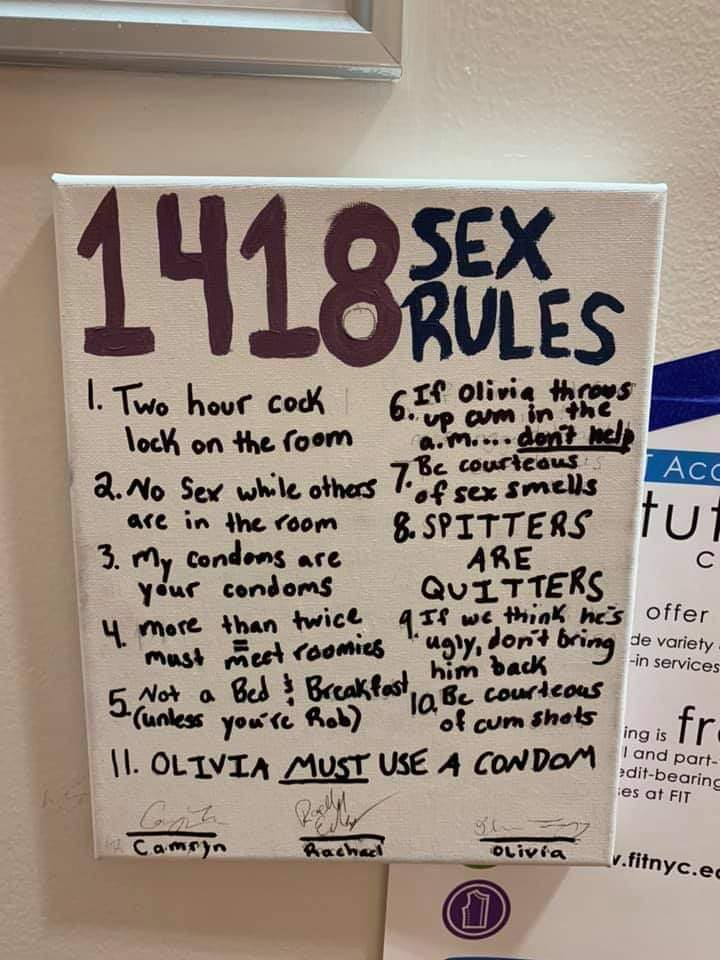 1418 SEX
RULES
1. Two hour cock
lock on the room
2. No Sex while others
are in the room
3. My condoms are
your condoms
4. more than twice
must meet roomies
5. Not a Bed & Breakfast
(unless you're Rob)
6. If Olivia throws
up cum in the
a.m.... don't help
7. Be courteous
of sex smells
8. SPITTERS
ARE
QUITTERS
9. If we think he's
ugly, don't bring
him back
10. Be courteous
of cum shots
11. OLIVIA MUST USE A CONDOM
Camryn
Rachael
Olivia
offer
de variety
-in services
ing is fr
l and part-
edit-bearing
es at FIT